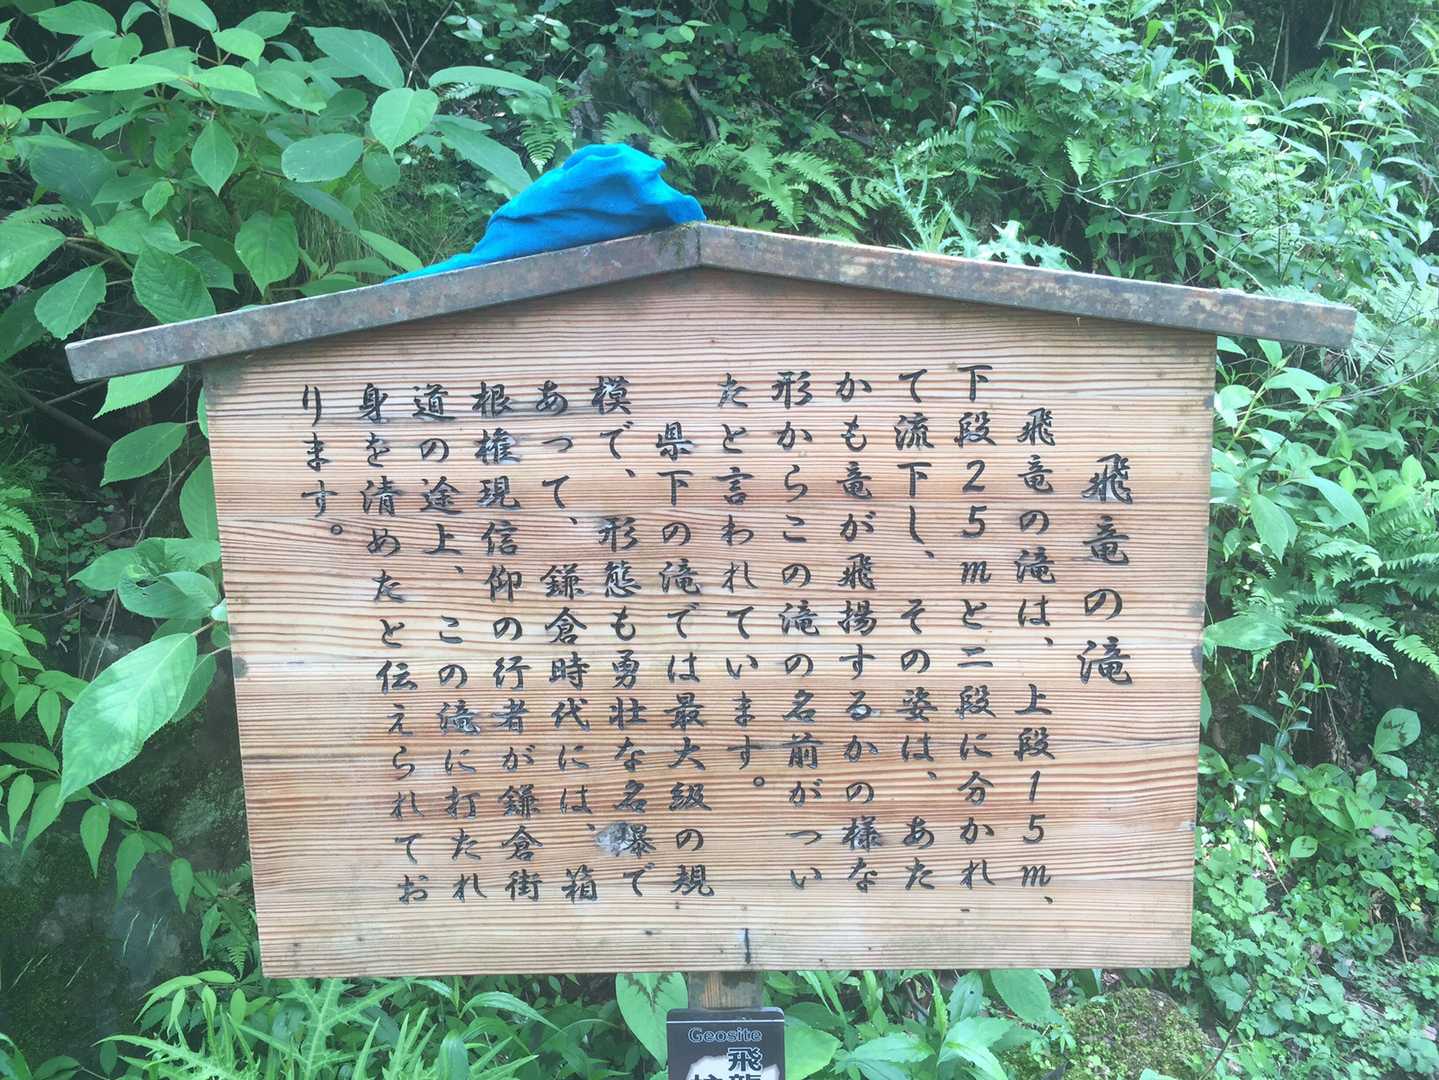 飛竜の滝
飛竜の滝は、上段15m、
下段25mと二段に分かれ
て流下し、その姿は、あた
かも竜が飛揚するかの様な
形からこの滝の名前がつい
たと言われています。
県下の滝では最大級の規
模で、形態も勇壮な名瀑で
あって、鎌倉時代には、箱
根権現信仰の行者が鎌倉街
道の途上、この滝に打たれ
身を清めたと伝えられてお
ります。
Geosite
飛龍